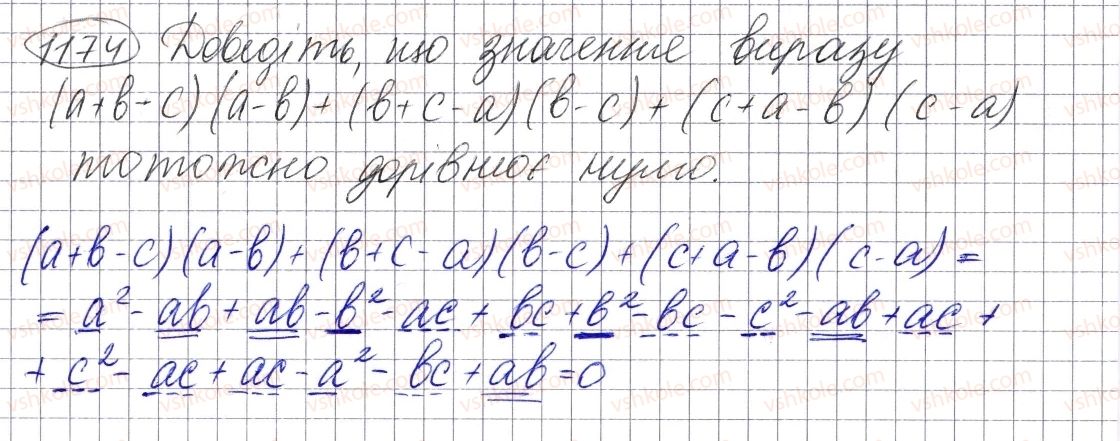 1174 Доведіть, що значення виразу
(a+b-c)(a-b)+(b+c-a)(b-c)+(c+a-b)(c-a)
тотожно дорівнює нулю.
(a+b-c)(a-b)+(b+c-a)(b-c)+(c+a-b)(c-a)=
=a²-ab+ab-b²-ac+bc+b²-bc-c²-ab+ac+
+c²-ac+ac-a²-bc+ab=0